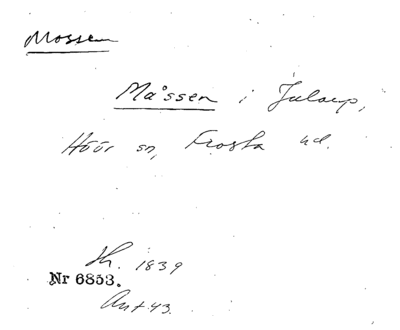 Mossen
Måssen i Jularp,
Höör sn, Frosta hd.
Jh. 1839
Nr 6853.
Ant 43.